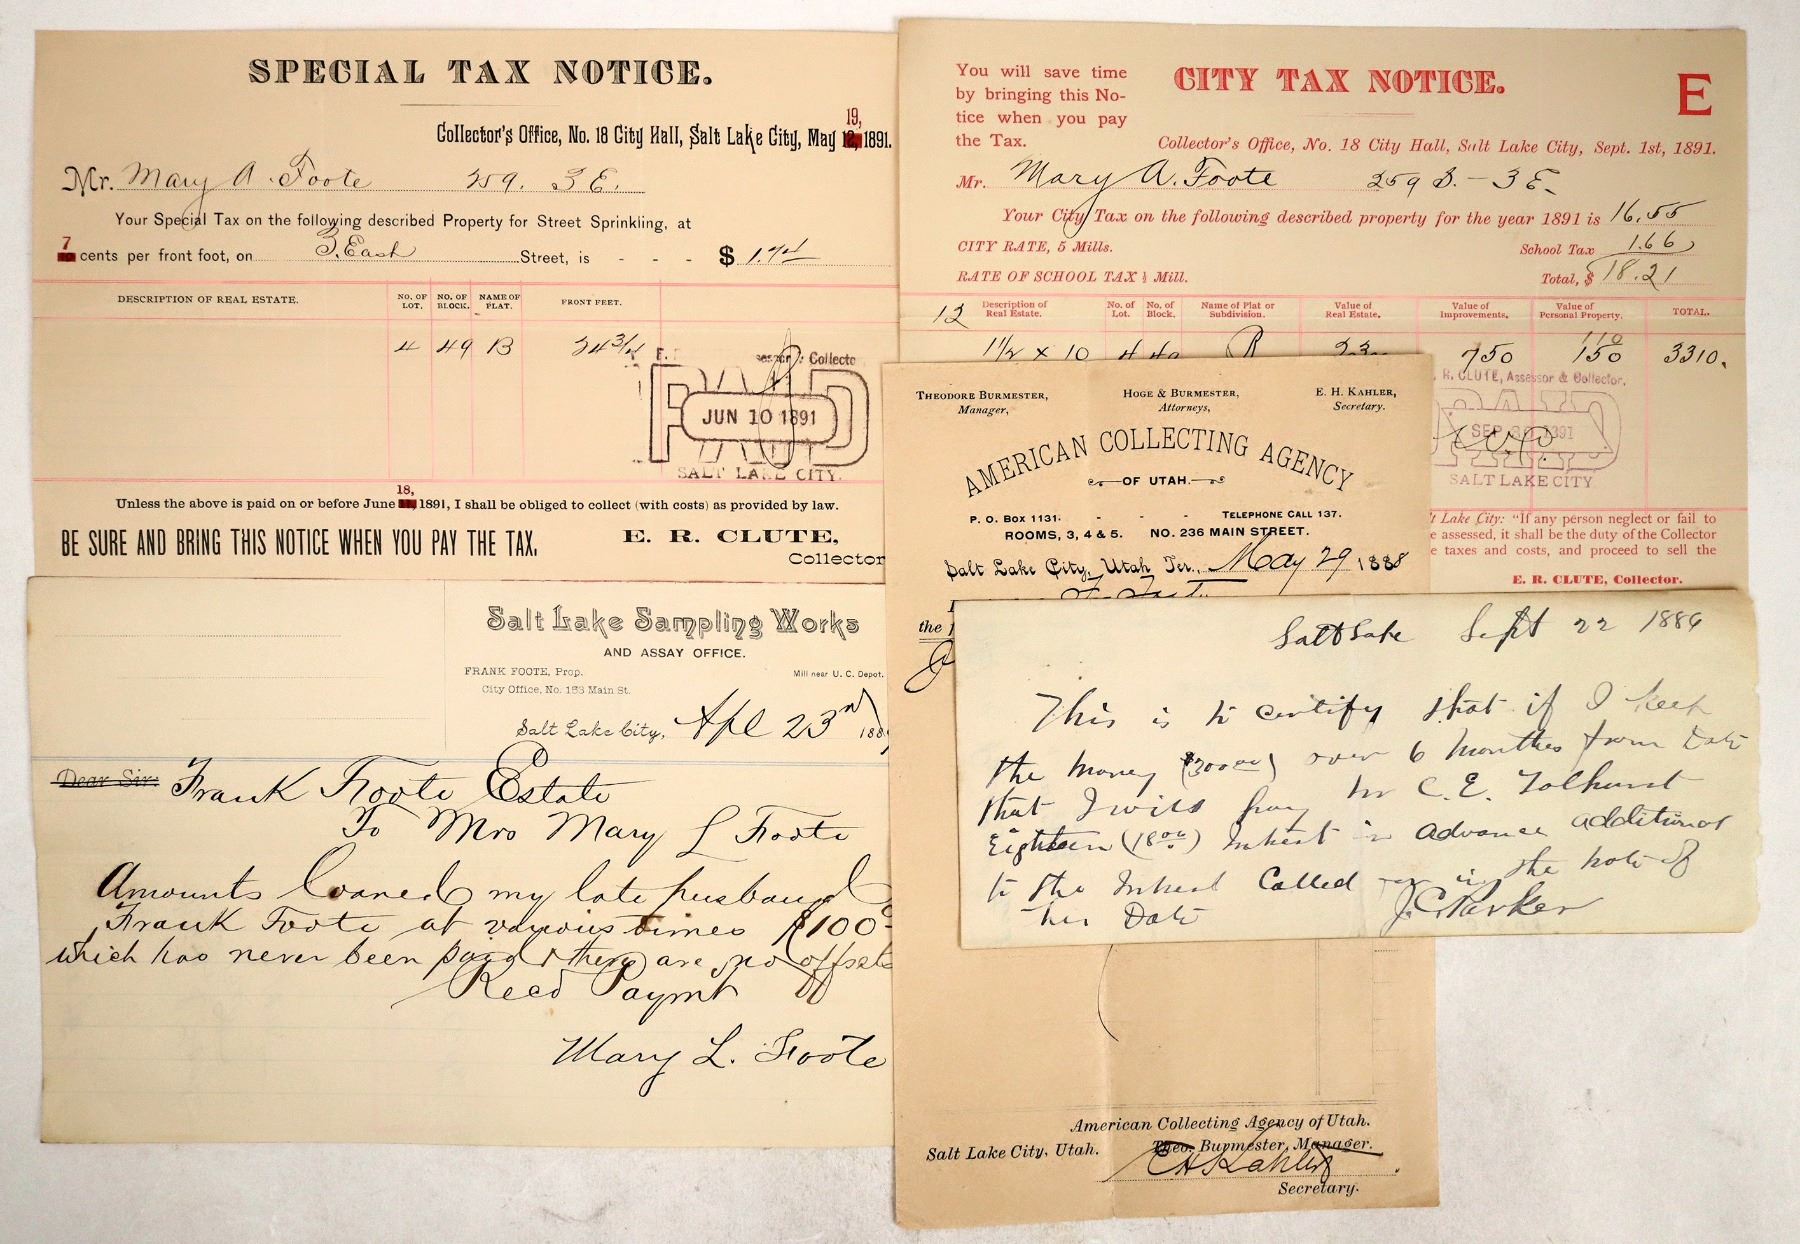 SPECIAL TAX NOTICE.
19,
Collector's Office, No. 18 City Hall, Salt Lake City, May 12, 1891.
Mr. Mary A. Foote 259. 3 E.
Your Special Tax on the following described Property for Street Sprinkling, at
7
cents per front foot, on 3. East Street, is - - - $ 1.74
DESCRIPTION OF REAL ESTATE. NO. OF LOT. NO. OF BLOCK. NAME OF PLAT. FRONT FEET.
4 49 B 24 3/4
Collecto
PAID
JUN 10 1891
SALT LAKE CITY.
18,
Unless the above is paid on or before June 1891, I shall be obliged to collect (with costs) as provided by law.
BE SURE AND BRING THIS NOTICE WHEN YOU PAY THE TAX.
E. R. CLUTE,
Collector
You will save time
by bringing this No-
tice when you pay
the Tax.
CITY TAX NOTICE.
E
Collector's Office, No. 18 City Hall, Salt Lake City, Sept. 1st, 1891.
Mr. Mary A. Foote 259 S. - 3 E.
Your City Tax on the following described property for the year 1891 is 16.55
CITY RATE, 5 Mills.
School Tax 1.66
RATE OF SCHOOL TAX ½ Mill.
Total, $ 18.21
12 Description of Real Estate. No. of Lot. No. of Block. Name of Plat or Subdivision. Value of Real Estate. Value of Improvements. Value of Personal Property. TOTAL.
110
1½ x 10 4 49 B 750 150 3310.
R. CLUTE, Assessor & Collector.
PAID
SEP 1891
SALT LAKE CITY
't Lake City: "If any person neglect or fail to
e assessed, it shall be the duty of the Collector
e taxes and costs, and proceed to sell the
E. R. CLUTE, Collector.
THEODORE BURMESTER,
Manager,
HOGE & BURMESTER,
Attorneys,
E. H. KAHLER,
Secretary.
AMERICAN COLLECTING AGENCY
OF UTAH.
P. O. Box 1131. - - - TELEPHONE CALL 137.
ROOMS, 3, 4 & 5. NO. 236 MAIN STREET.
Salt Lake City, Utah Ter., May 29 1888
the
American Collecting Agency of Utah.
Salt Lake City, Utah. Theo. Burmester, Manager.
E H Kahler
Secretary.
Salt Lake Sampling Works
AND ASSAY OFFICE.
FRANK FOOTE, Prop.
Mill near U. C. Depot.
City Office, No. 153 Main St.
Salt Lake City, Apl 23rd 188
Dear Sir: Frank Foote Estate
To Mrs Mary L Foote
Amounts loaned my late husband
Frank Foote at various times $100
which has never been paid & there are no offsets
Recd Paymt
Mary L. Foote
Salt Lake Sept 22 1886
This is to certify that if I keep
the money ($300 00) over 6 months from Date
that I will pay Mr C. E. Tolhurst
Eighteen (18 00) Intrest in advance additional
to the Intrest Called for in the note of
this Date J. C. Parker